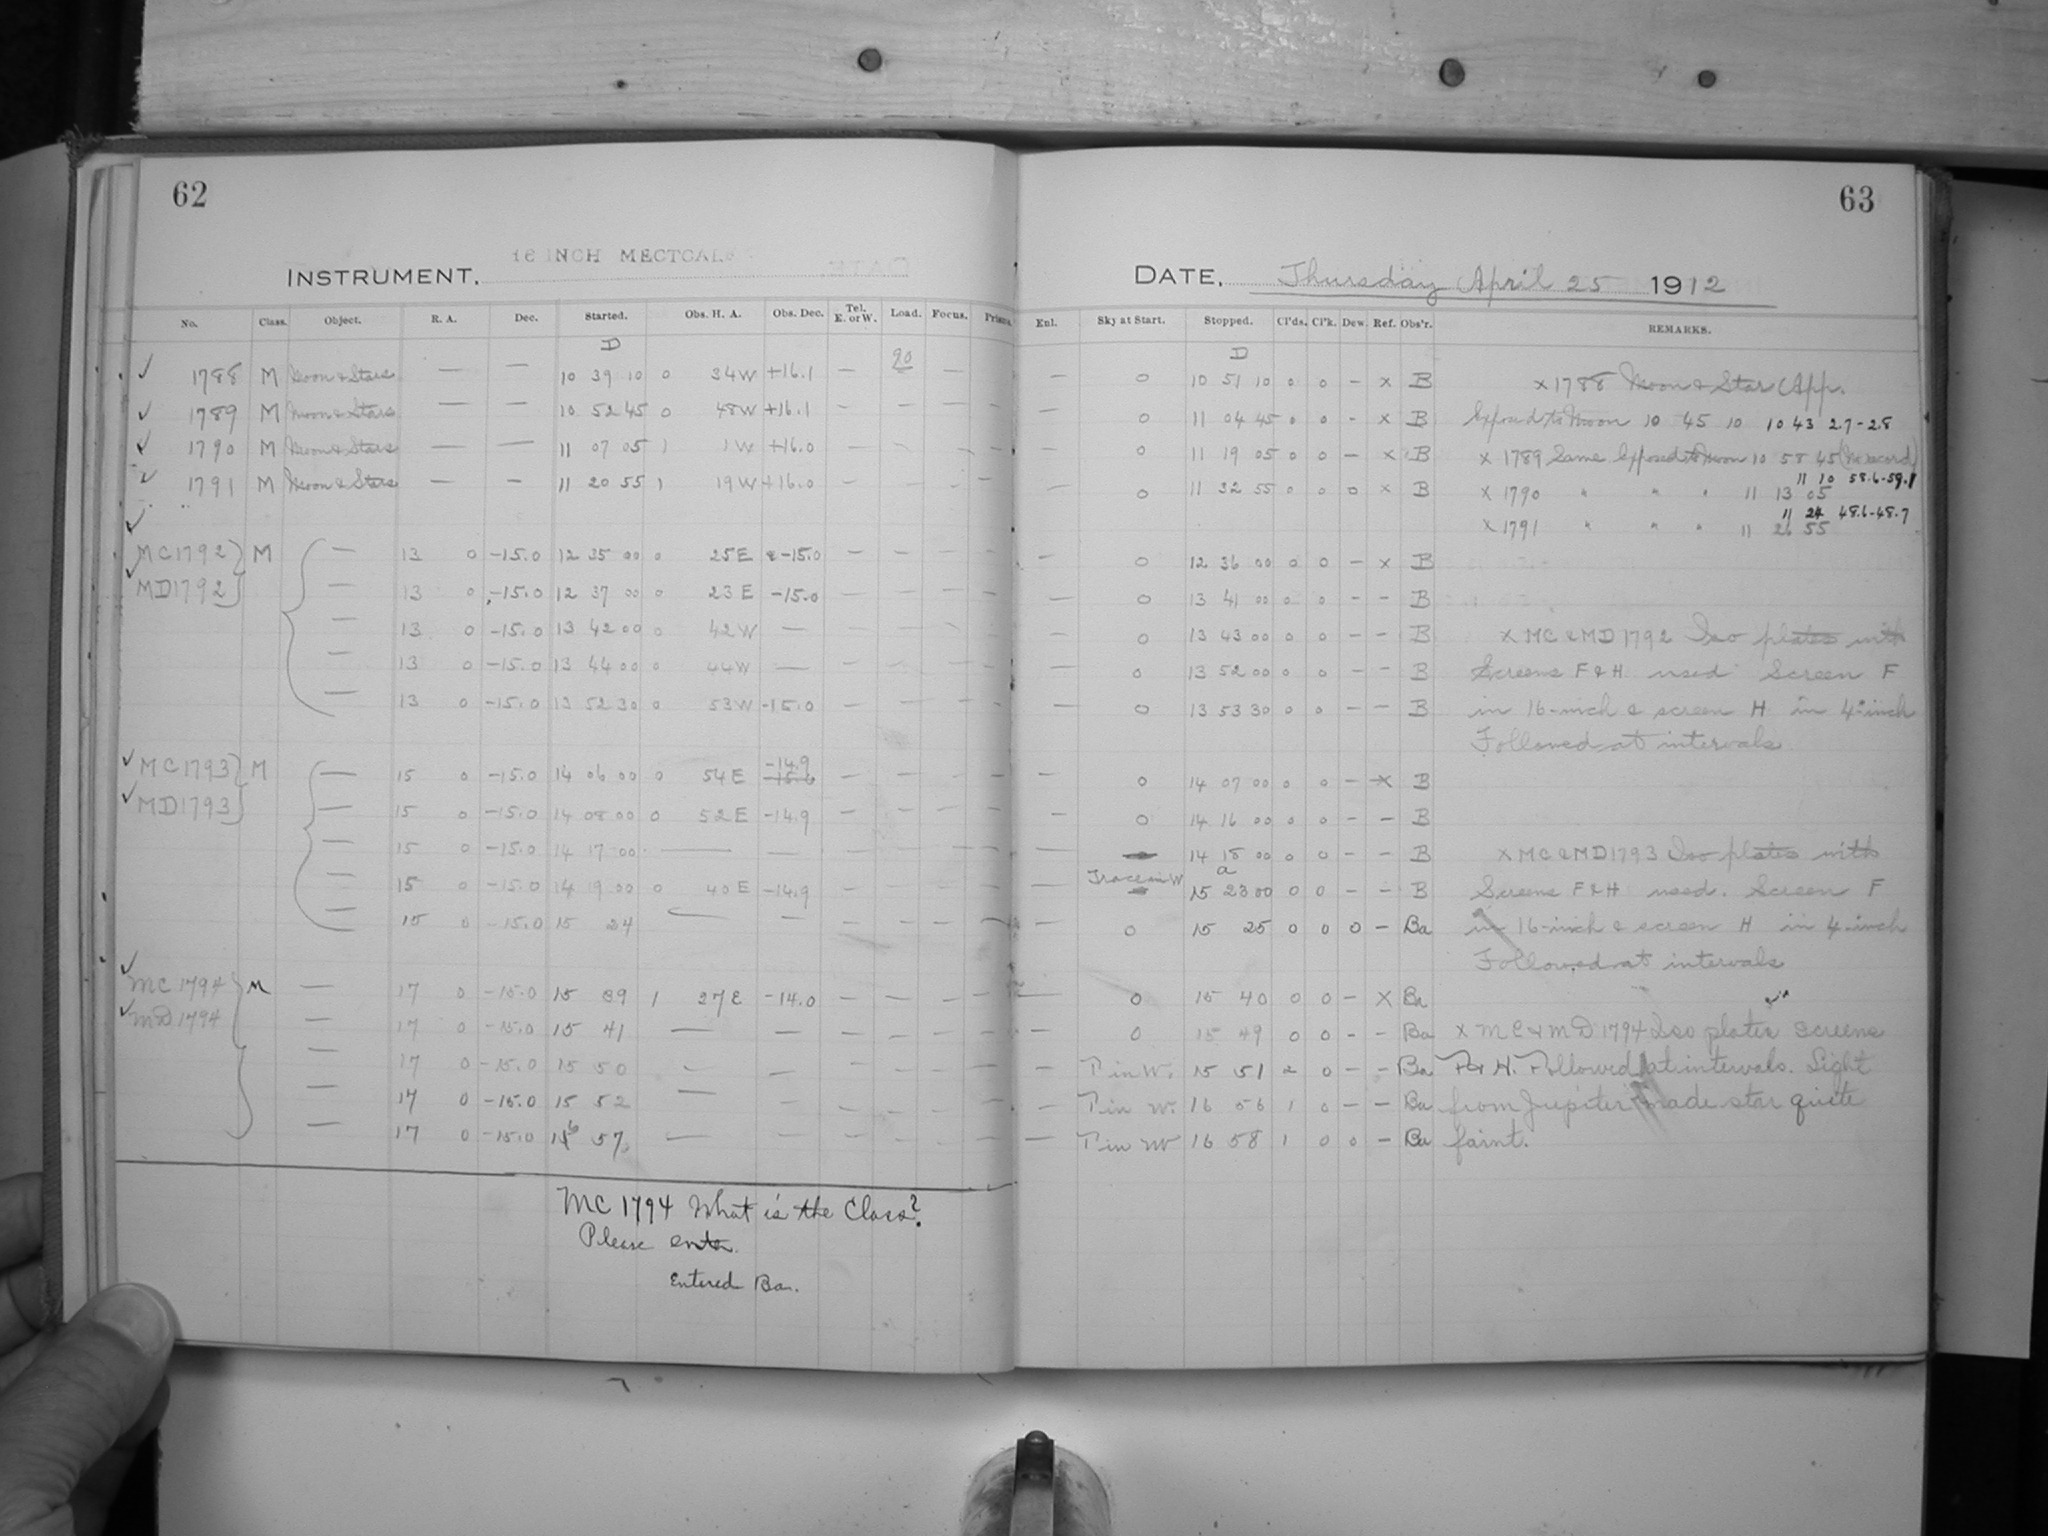 62
16 INCH METCALF
INSTRUMENT.
No. Class. Object. R. A. Dec. Started. Obs. H. A. Obs. Dec. Tel. E. or W. Load. Focus. Prism.
D
✓ 1788 M Moon & Stars — — 10 39 10 0 34 W +16.1 — 90 — —
✓ 1789 M Moon & Stars — — 10 52 45 0 48 W +16.1 — — — —
✓ 1790 M Moon & Stars — — 11 07 05 1 1 W +16.0 — — — —
✓ 1791 M Moon & Stars — — 11 20 55 1 19 W +16.0 — — — —
✓ MC 1792 M — 13 0 -15.0 12 35 00 0 25 E -15.0 — — — —
✓ MD 1792 — 13 0 -15.0 12 37 00 0 23 E -15.0 — — — —
— 13 0 -15.0 13 42 00 0 42 W — — — — —
— 13 0 -15.0 13 44 00 0 44 W — — — — —
— 13 0 -15.0 13 52 30 0 53 W -15.0 — — — —
✓ MC 1793 M — 15 0 -15.0 14 06 00 0 54 E -14.9 — — — —
✓ MD 1793 — 15 0 -15.0 14 08 00 0 52 E -14.9 — — — —
— 15 0 -15.0 14 17 00 — — — — — —
— 15 0 -15.0 14 19 00 0 40 E -14.9 — — — —
— 15 0 -15.0 15 24 — — — — — —
✓ MC 1794 M — 17 0 -15.0 15 39 1 27 E -14.0 — — — —
✓ MD 1794 — 17 0 -15.0 15 41 — — — — — —
— 17 0 -15.0 15 50 — — — — — —
— 17 0 -15.0 15 52 — — — — — —
— 17 0 -15.0 16 57 — — — — — —
MC 1794 What is the Class?
Please enter.
Entered Ba.
63
DATE, Thursday April 25 1912
Enl. Sky at Start. Stopped. Cl'ds. Cl'k. Dew. Ref. Obs'r. REMARKS.
D
— 0 10 51 10 0 0 — x B x 1788 Moon & Star App.
— 0 11 04 45 0 0 — x B Exposed to Moon 10 45 10 10 43 2.7-2.8
— 0 11 19 05 0 0 — x B x 1789 Same Exposed to Moon 10 58 45 (No record)
11 10 58.6-59.1
— 0 11 32 55 0 0 0 x B x 1790 " " " 11 13 05
11 24 48.6-48.7
x 1791 " " " 11 26 55
— 0 12 36 00 0 0 — x B
— 0 13 41 00 0 0 — — B
0 13 43 00 0 0 — — B x MC & MD 1792 Iso plates with
— 0 13 52 00 0 0 — — B Screens F & H used Screen F
— 0 13 53 30 0 0 — — B in 16-inch & screen H in 4-inch
Followed at intervals
0 14 07 00 0 0 — x B
— 0 14 16 00 0 0 — — B
— 14 18 00 0 0 — — B x MC & MD 1793 Iso plates with
a
— Trace in W 15 23 00 0 0 — — B Screens F & H used. Screen F
— 0 15 25 0 0 0 — Ba in 16-inch & screen H in 4-inch
Followed at intervals
— 0 15 40 0 0 — x Ba
— 0 15 49 0 0 — — Ba x MC & MD 1794 Iso plates screens
— T in W. 15 51 2 0 — — Ba F & H. Followed at intervals. Light
— T in W. 16 56 1 0 — — Ba from Jupiter made star quite
— T in W 16 58 1 0 0 — Ba faint.